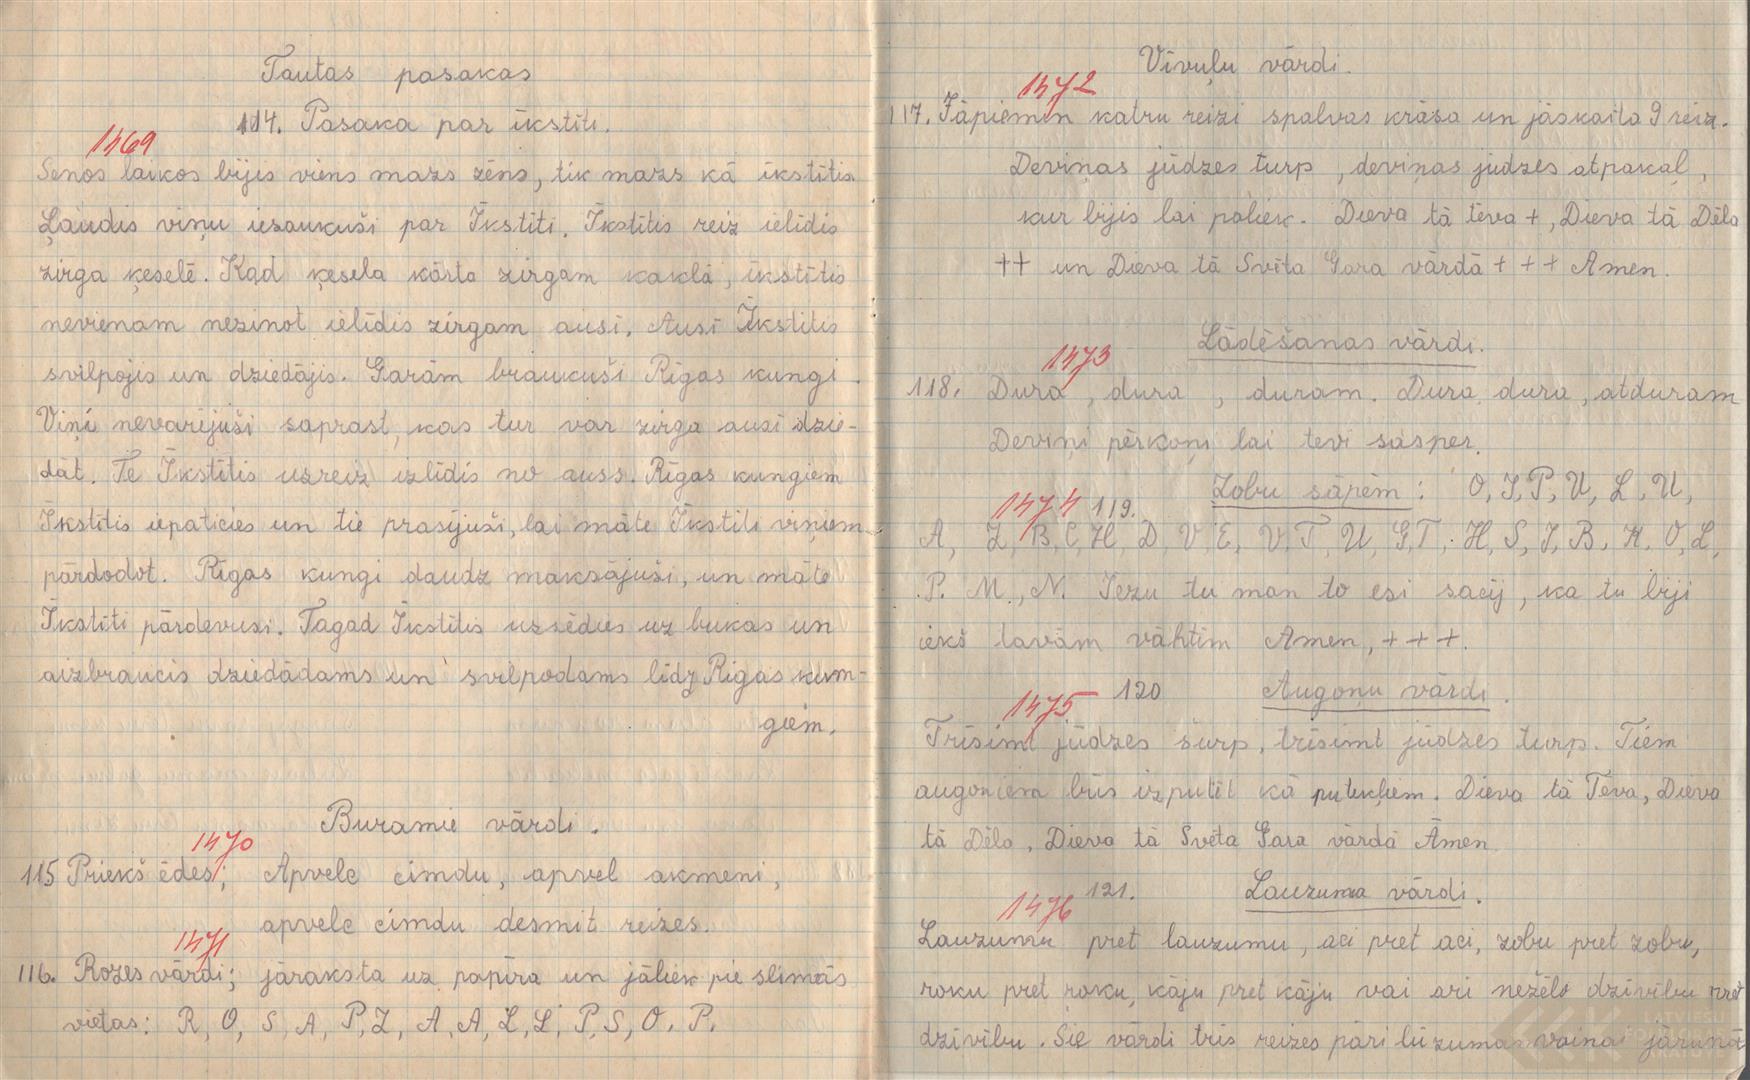 Tautas pasakas
114. Pasaka par īkstīti.
1469
Senos laikos bijis viens mazs zēns, tik mazs kā īkstītis.
Ļaudis viņu iesaukuši par Īkstīti. Īkstītis reiz ielīdis
zirga ķeselē. Kad ķesela kārta zirgam kaklā, īkstītis
nevienam nezinot ielīdis zirgam ausī. Ausī Īkstītis
svilpojis un dziedājis. Garām braukuši Rīgas kungi.
Viņi nevarējuši saprast, kas tur var zirga ausī dzie-
dāt. Te Īkstītis uzreiz izlīdis no auss. Rīgas kungiem
Īkstītis iepaticies un tie prasījuši, lai māte Īkstīti viņiem
pārdodot. Rīgas kungi daudz maksājuši, un māte
Īkstīti pārdevusi. Tagad Īkstītis uzsēdies uz bukas un
aizbraucis dziedādams un svilpodams līdz Rīgas kun-
giem.
Buramie vārdi.
1470
115 Priekš ēdes; Apvele cimdu, apvel akmeni,
apvele cimdu desmit reizes.
1471
116. Rozes vārdi; jāraksta uz papīra un jāliek pie slimās
vietas: R, O, S, A, P, Z, A, A, L, L, P, S, O, P.
Vīvuļu vārdi.
1472
117. Jāpiemin katru reizi spalvas krāsa un jāskaita 9 reiz.
Deviņas jūdzes turp, deviņas jūdzes atpakaļ,
kur bijis lai paliek. Dieva tā tēva +, Dieva tā Dēla
++ un Dieva tā Svēta Gara vārdā + + + Amen.
Lādēšanas vārdi.
1473
118. Dura, dura, duram. Dura, dura, atduram
Deviņi pērkoņi lai tevi sasper.
1474 119. Zobu sāpēm: O, I, P, U, L, U,
A, Z, B, C, H, D, V, E, V, T, U, G, T, H, S, I, B, K, O, L,
P. M., N. Jezu tu man to esi sacīj, ka tu biji
iekš tavām vāhtīm Amen, + + +.
1475 120 Augoņu vārdi.
Trīsimt jūdzes šurp, trīsimt jūdzes turp. Tiem
augoņiem būs izputēt kā putekļiem. Dieva tā Tēva, Dieva
tā Dēla, Dieva tā Svēta Gara vārdā Āmen.
1476 121. Lauzuma vārdi.
Lauzumu pret lauzumu, aci pret aci, zobu pret zobu,
roku pret roku, kāju pret kāju vai arī nežēlo dzīvību pret
dzīvību. Šie vārdi trīs reizes pāri lūzuma vainai jārunā
LATVIEŠU
FOLKLORAS
KRĀTUVE